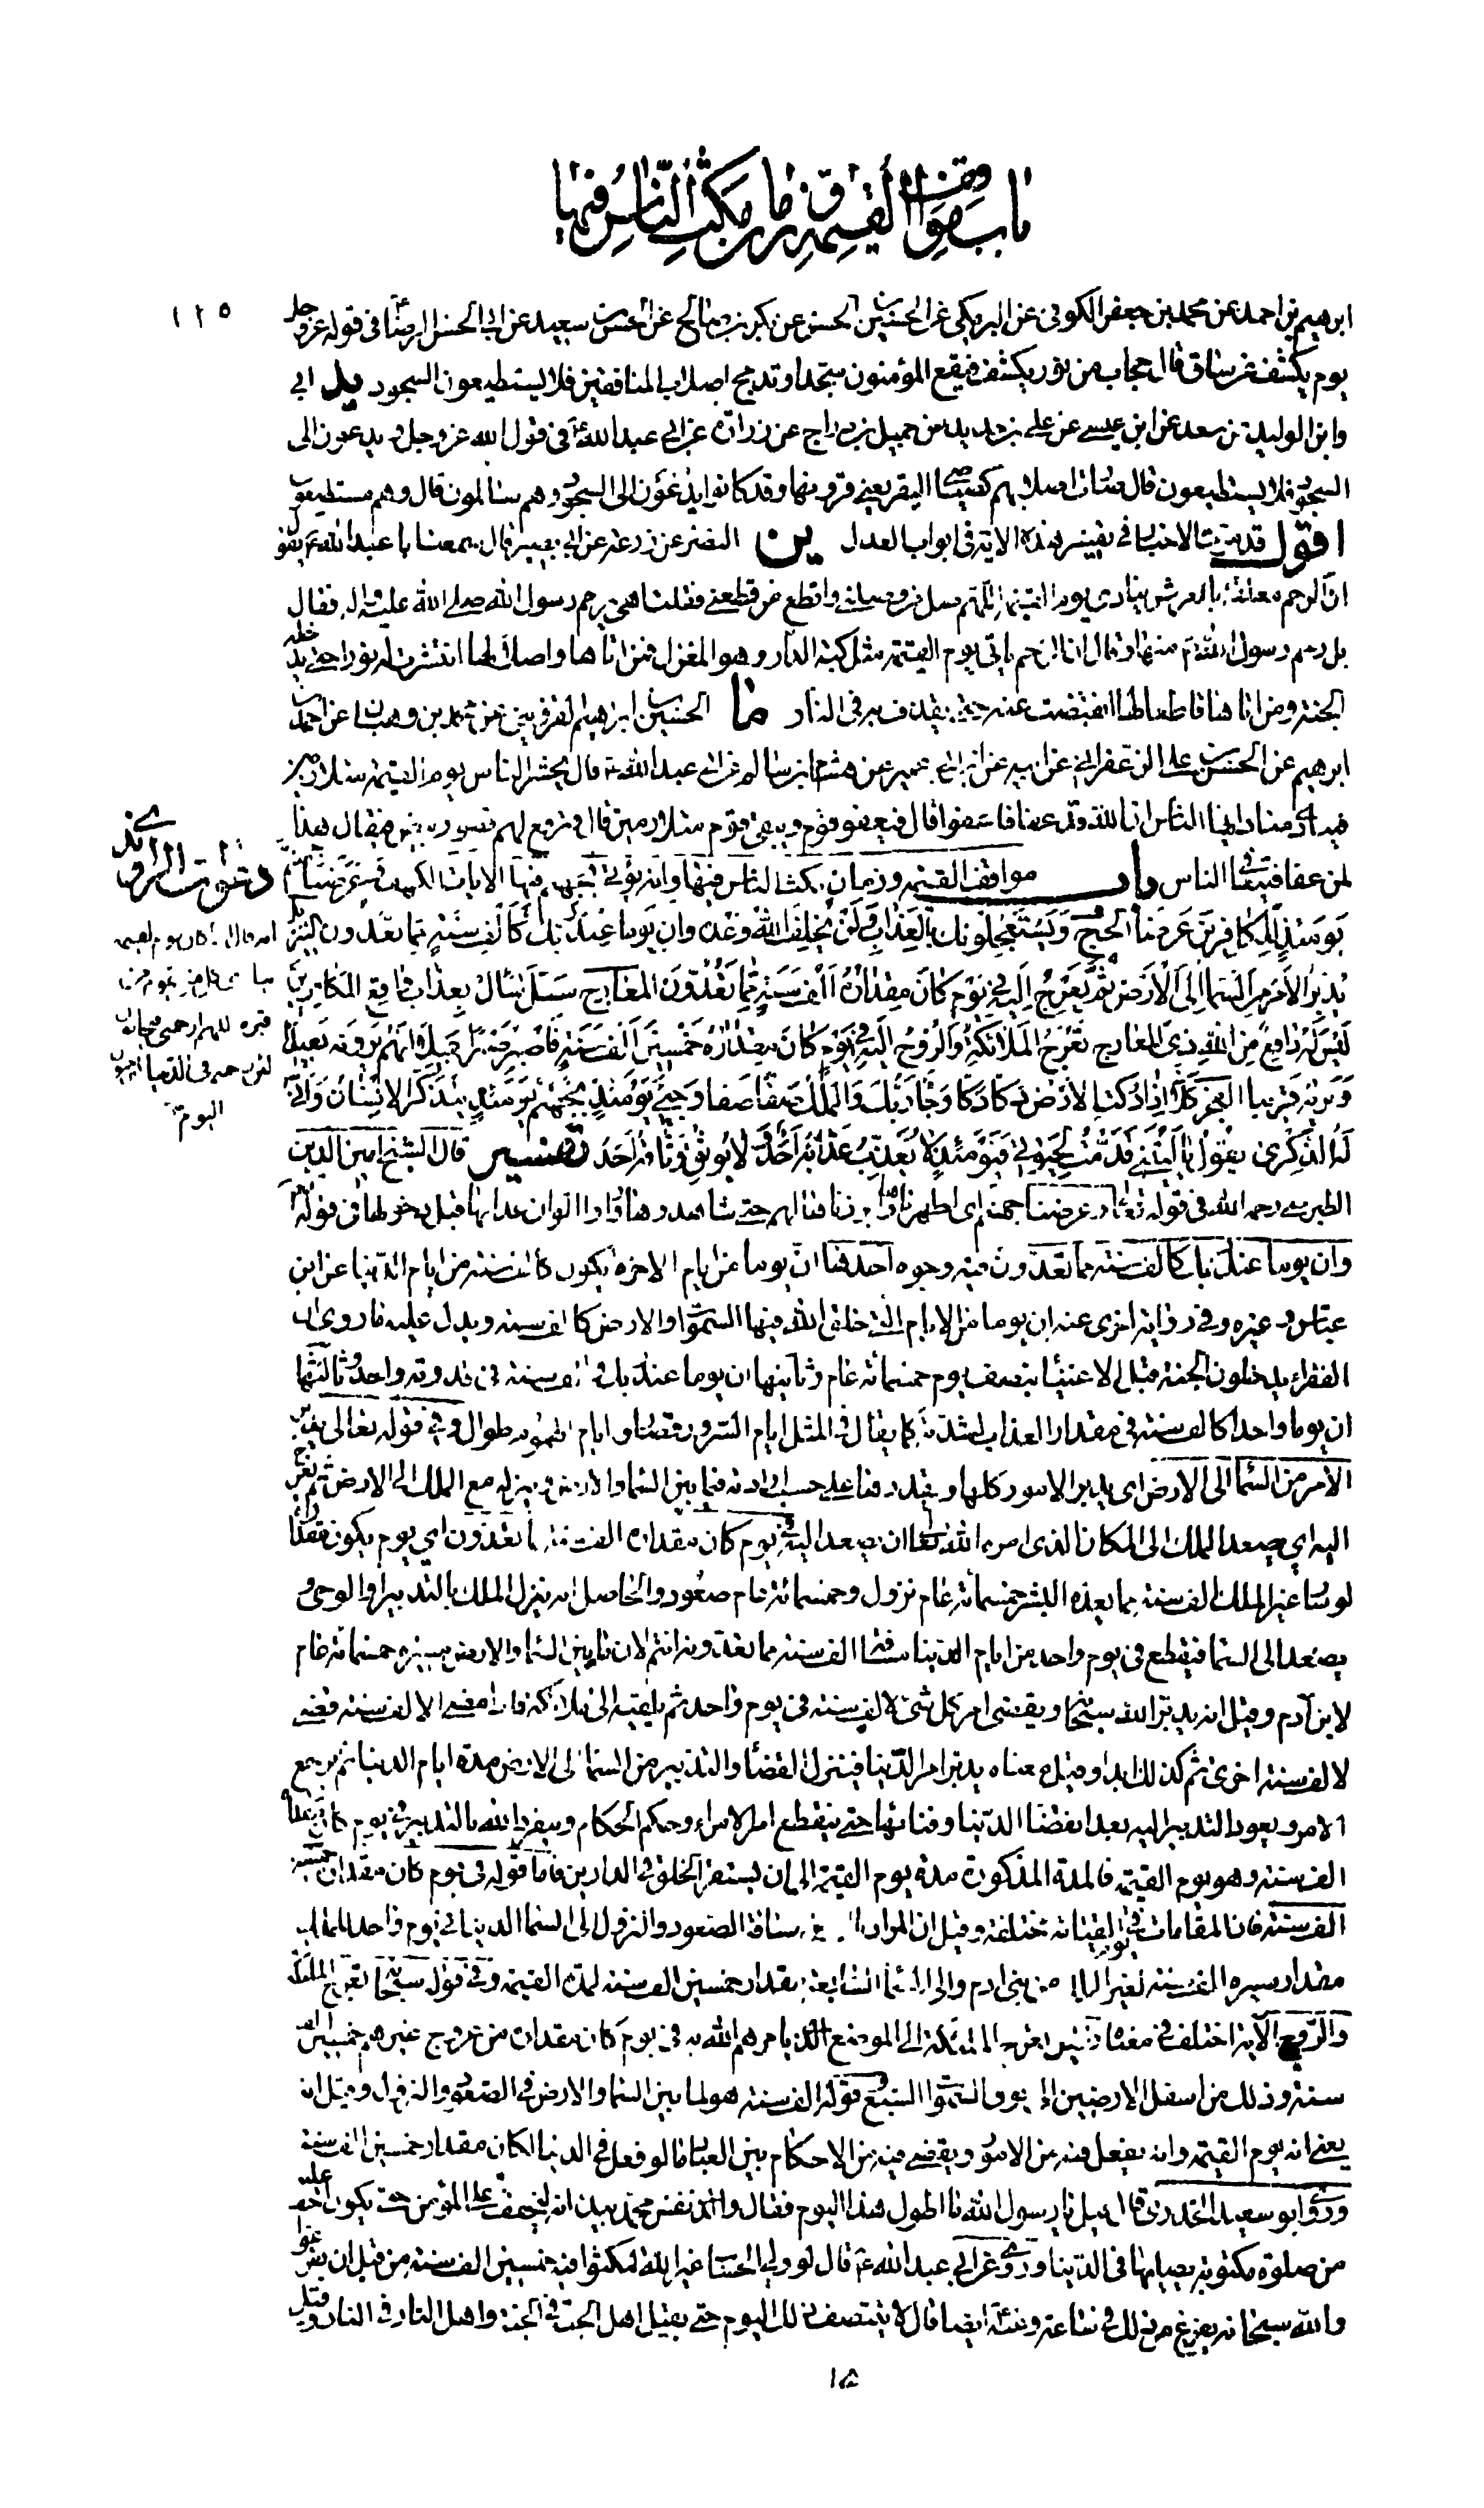 باب مواقف القيمة و زمان مكث الناس فيها
١١٥
ابرهيم بن احمد عن محمد بن جعفر الكوفى عن البرمكى عن الحسين بن الحسن عن بكر بن صالح عن الحسن بن سعيد عن ابى الحسن الرضا ع فى قوله عز و جل
يوم يكشف عن ساق قال حجاب من نور يكشف فيقع المؤمنون سجدا و تدمج اصلاب المنافقين فلا يستطيعون السجود يد ابى
و ابن الوليد عن سعد عن ابن عيسى عن على بن حديد عن جميل بن دراج عن زرارة عن ابى عبد الله ع فى قول الله عز و جل و يدعون الى
السجود فلا يستطيعون قال صارت اصلابهم كصياصى البقر يعنى قرونها و قد كانوا يدعون الى السجود و هم سالمون قال و هم مستطيعون
اقول قد مرت الاخبار فى تفسير هذه الاية فى ابواب العدل ين النضر عن زرعة عن ابى بصير قال سمعت ابا عبد الله ع يقول
ان الرحم معلقة بالعرش ينادى يوم القيمة اللهم صل من وصلنى و اقطع من قطعنى فقلت اهى رحم رسول الله صلى الله عليه و اله فقال
بل رحم رسول الله ص منها و قال ان الرحم ياتى يوم القيمة مثل كبة المدار و هو المغزل فمن اتاها واصلا لها انتشرت له نورا حتى يدخله
الجنة و من اتاها قاطعا لها انقبضت عنه حتى يقذف به فى النار ما الحسين بن ابراهيم القزوينى عن محمد بن وهبان عن احمد بن
ابرهيم عن الحسن بن على الزعفرانى عن ابيه عن ابن ابى عمير عن هشام بن سالم عن ابى عبد الله ع قال يحشر الناس يوم القيمة متلازمين
فينادى مناد ايها الناس ان الله قد عفا فاعفوا قال فيعفو قوم و يبقى قوم متلازمين قال فترفع لهم قصور بيض فيقال هذا
لمن عفا فيتعافى الناس باب مواقف القيمة و زمان مكث الناس فيها و انه يؤتى بجهنم فيها الايات الكهف و عرضنا جهنم
يومئذ للكافرين عرضا الحج و يستعجلونك بالعذاب و لن يخلف الله وعده و ان يوما عند ربك كالف سنة مما تعدون التنزيل
يدبر الامر من السماء الى الارض ثم يعرج اليه فى يوم كان مقداره الف سنة مما تعدون المعارج سئل سائل بعذاب واقع للكافرين
ليس له دافع من الله ذى المعارج تعرج الملائكة و الروح اليه فى يوم كان مقداره خمسين الف سنة فاصبر صبرا جميلا انهم يرونه بعيدا
و نريه قريبا الفجر كلا اذا دكت الارض دكا دكا و جاء ربك و الملك صفا صفا و جىء يومئذ بجهنم يومئذ يتذكر الانسان و انى
له الذكرى يقول يا ليتنى قدمت لحيوتى فيومئذ لا يعذب عذابه احد و لا يوثق وثاقه احد تفسير قال الشيخ امين الدين
الطبرسى رحمه الله فى قوله تعالى و عرضنا جهنم اى اظهرناها و ابرزناها لهم حتى شاهدوها و راوا الوان عذابها قبل دخولها فى قوله تعالى
و ان يوما عند ربك كالف سنة مما تعدون فيه وجوه احدها ان يوما من ايام الاخرة يكون كالف سنة من ايام الدنيا عن ابن
عباس و غيره و فى رواية اخرى عنه ان يوما من الايام التى خلق الله فيها السموات و الارض كالف سنة و يدل عليه ما روى ان
الفقراء يدخلون الجنة قبل الاغنياء بنصف يوم خمسمائة عام و ثانيها ان يوما عند ربك و الف سنة فى قدرته واحد و ثالثها
ان يوما واحدا كالف سنة فى مقدار العذاب لشدته كما يقال فى المثل ايام السرور قصار و ايام الهموم طوال و فى قوله تعالى يدبر
الامر من السماء الى الارض اى يدبر الامور كلها و يقدرها على حسب ارادته فيما بين السماء و الارض و ينزله مع الملك الى الارض ثم يعرج
اليه اى يصعد الملك الى المكان الذى امره الله تعالى ان يصعد اليه فى يوم كان مقداره الف سنة مما تعدون اى يوم يكون مقداره
لو ساره غير الملك الف سنة مما يعده البشر خمسمائة عام نزول و خمسمائة عام صعود و الحاصل انه ينزل الملك بالتدبير او الوحى و
يصعد الى السماء فيقطع فى يوم واحد من ايام الدنيا مسافة الف سنة مما تعدونه انتم لان ما بين السماء و الارض مسيرة خمسمائة عام
لابن آدم و قيل انه يدبر الله سبحانه و يقضى امر كل شىء لالف سنة فى يوم واحد ثم يلقيه الى ملائكته فاذا مضى الالف سنة قضى
لالف سنة اخرى ثم كذلك ابدا و قيل معناه يدبر امر الدنيا فينزل القضاء و التدبير من السماء الى الارض مدة ايام الدنيا ثم يرجع
الامر و يعود التدبير اليه بعد انقضاء الدنيا و فنائها حتى ينقطع امر الامراء و حكم الحكام و ينفرد الله بالتدبير فى يوم كان مقداره
الف سنة و هو يوم القيمة فالمدة المذكورة مدة يوم القيمة الى ان يستقر الخلق فى الدارين فاما قوله فى يوم كان مقداره خمسين
الف سنة فان المقامات فى يوم القيامة مختلفة و قيل ان المراد ان مسافة الصعود و النزول الى السماء الدنيا فى يوم واحد للملك
مقدار مسيرة الف سنة لغير الملك من بنى ادم و الى السماء السابعة مقدار خمسين الف سنة لمدة القيمة و فى قوله سبحانه تعرج الملئكة
و الروح الآية اختلف فى معناه فقيل تعرج الملئكة الى الموضع الذى يامرهم الله به فى يوم كان مقداره من عروج غيرهم خمسين الف
سنة و ذلك من اسفل الارضين الى فوق السموات السبع و قوله الف سنة هو لما بين السماء و الارض فى الصعود و النزول و قيل انه
يعنى انه يوم القيمة و انه يفعل فيه من الامور و يقضى فيه من الاحكام بين العباد ما لو فعل فى الدنيا لكان مقدار خمسين الف سنة
و روى ابو سعيد الخدرى قال قيل يا رسول الله ما اطول هذا اليوم فقال و الذى نفس محمد بيده انه ليخفف على المؤمن حتى يكون اخف عليه
من صلوة مكتوبة يصليها فى الدنيا و روى عن ابى عبد الله ع قال لو ولى الحساب غير الله لمكثوا فيه خمسين الف سنة من قبل ان يفرغوا
و الله سبحانه يفرغ من ذلك فى ساعة و عنه ايضا قال لا ينتصف ذلك اليوم حتى يقيل اهل الجنة فى الجنة و اهل النار فى النار و قيل
دعوات الراوندى
انه قال اذا كان يوم القيمة
قبره اللهم ارحمنى
فى الدنيا
اليوم
١٥